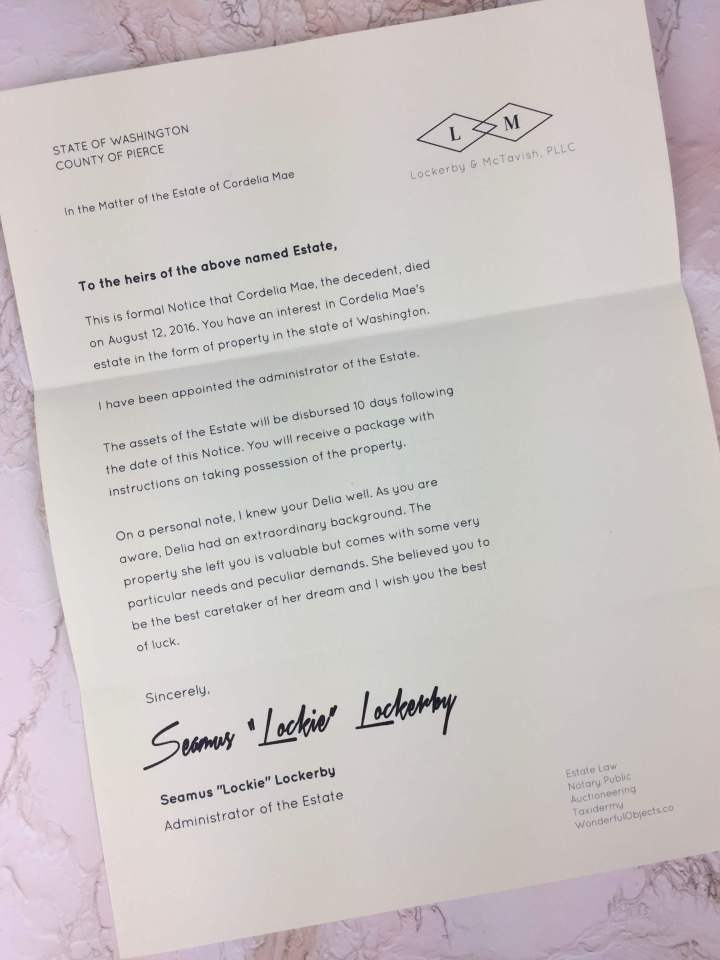 STATE OF WASHINGTON
COUNTY OF PIERCE
L M
Lockerby & McTavish, PLLC
In the Matter of the Estate of Cordelia Mae
To the heirs of the above named Estate,
This is formal Notice that Cordelia Mae, the decedent, died
on August 12, 2016. You have an interest in Cordelia Mae's
estate in the form of property in the state of Washington.
I have been appointed the administrator of the Estate.
The assets of the Estate will be disbursed 10 days following
the date of this Notice. You will receive a package with
instructions on taking possession of the property.
On a personal note, I knew your Delia well. As you are
aware, Delia had an extraordinary background. The
property she left you is valuable but comes with some very
particular needs and peculiar demands. She believed you to
be the best caretaker of her dream and I wish you the best
of luck.
Sincerely,
Seamus "Lockie" Lockerby
Seamus "Lockie" Lockerby
Administrator of the Estate
Estate Law
Notary Public
Auctioneering
Taxidermy
WonderfulObjects.co